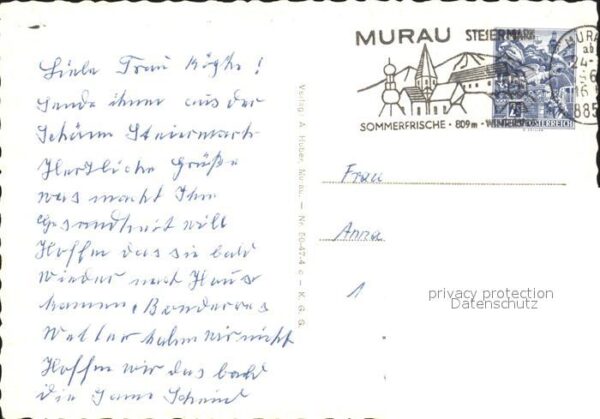 Liebe Frau
Sende ihnen aus der
Schönn Steiermark
Herzliche Grüße
was macht Ihre
Gesandheit will
Hoffen das sie bald
wieder nach Haus
kommen,
Wetter haben wir nicht
Hoffen wir das bald
die Sonne Scheind
Verlag: A. Huber, Murau. — Nr. 50-47-4 c — K. G. S.
MURAU STEIERMARK
SOMMERFRISCHE · 809m · WINTER
2 S
ÖSTERREICH
MURAU
ab
24-
16
885
Frau
Anna
1
privacy protection
Datenschutz